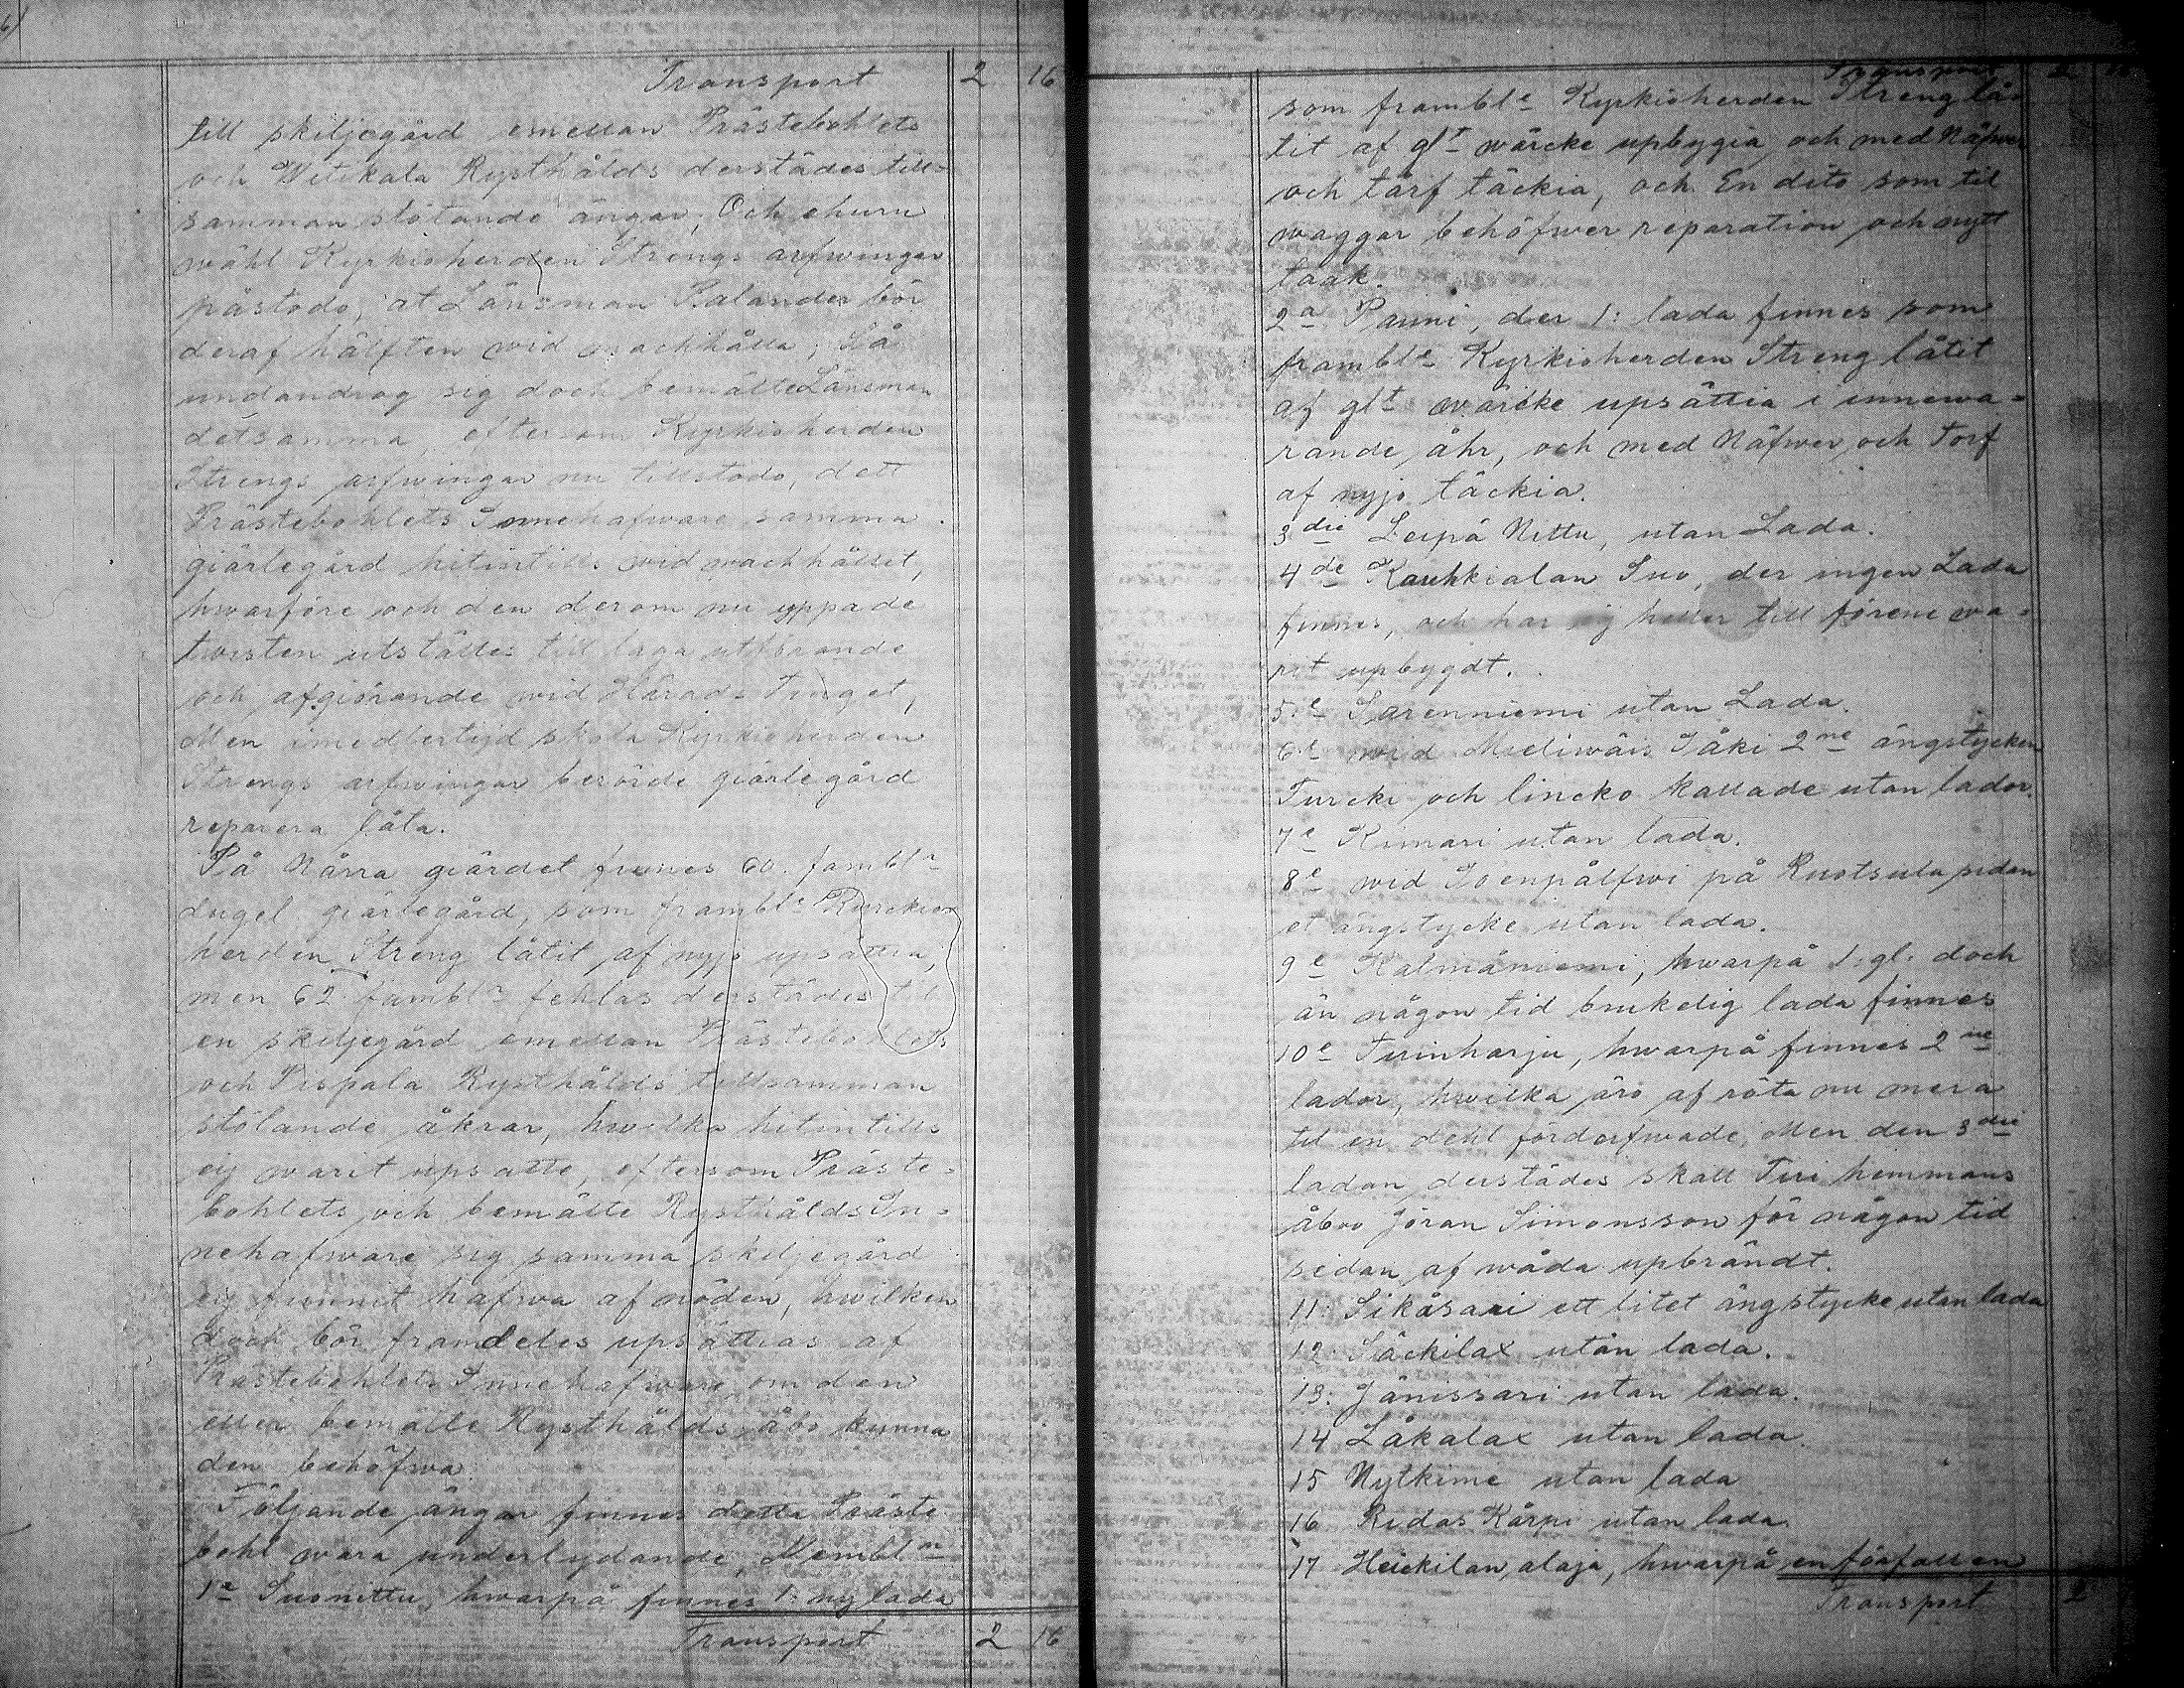 6)
Transport 2 16
till skiljegård emellan Prästebohlets
och Witikala Rysthålds derstädes till=
samman stötande ängar, Och ehuru
wähl Kyrkioherden Strengs arfwingar
påstodo, at Länsman Palander bör
deraf hälften wid macht hålla; Så
undandrog sig doch bemälte Länsman
detsamma, eftersom Kyrkioherden
Strengs arfwingar nu tillstodo, dett
Prästebohlets Innehafware samma
giärlegård hitintills wid macht hållit,
hwarföre och den derom nu yppade
twisten utställes till laga utförande
och afgiörande wid Härads Tinget,
Men imedlertijd skola Kyrkioherden
Strengs arfwingar berörde giärlegård
reparera låta.
På Närra giärdet finnes 60. fambl:r
Lugel giärlegård, som frambl:e Kyrckio=
herden Streng låtit af nyjo upsättia,
men 62 fambl:r fehlas derstädes til
en skiljegård emellan Prästebohlets
och Pispala Rysthålds tillsamman
stötande åkrar, hwilka hitintills
eij warit upsatte, eftersom Präste=
bohlets och bemälte Rysthålds In=
nehafware sig samma skiljegård
eij funnit hafwa af nöden, hwilken
doch bör framdeles upsättias af
Prästebohlets Innehafware, om den
eller bemälte Rysthålds åbo kunna
den behöfwa.
Följande ängar finnes detta Präste
bohl wara underlydande, Nembl:n
1:a Suonittu, hwarpå finnes 1: ny lada
Transport 2 16
Transport 2 16
som frambl:e Kyrkioherden Streng lå=
tit af gl:t wärcke upbygia och med Näfwer
och tårf täckia, och En dito som til
waggar behöfwer reparation och nytt
taak.
2:a Pauni, der 1: lada finnes som
frambl:e Kyrkioherden Streng låtit
af gl:t wärcke upsättia i innewa=
rande åhr, och med Näfwer och Torf
af nyjo täckia.
3:die Leipä Nittu, utan Lada.
4:de Kauhkialan Suo, der ingen Lada
finnes, och har eij heller till förene wa=
rit upbygdt.
5:e Sarenniemi utan Lada.
6:e wid Meliwäis Jåki 2:ne ängstycken
Turcki och lincko kallade utan lador.
7:e Kimari utan lada.
8:e wid Joenpålfwi på Ruotsula sidan
et ängstycke utan lada.
9:e Kalmäniemi, hwarpå 1: gl: doch
än någon tid brukelig lada finnes
10:e Tuinharju, hwarpå finnes 2:ne
lador, hwilka äro af röta nu mera
til en dehl förderfwade, Men den 3:die
ladan derstädes skall Turi hemmans
åboo Jöran Simonsson för någon tid
sedan af wåda upbrändt.
11: Sikåsaari ett litet ängstycke utan lada
12. Säckilax utan lada.
13: Jänissari utan lada.
14 Låkalax utan lada.
15 Nytkime utan lada
16 Ridas Kårpi utan lada.
17 Heickilan alaja, hwarpå en förfallen
Transport 2